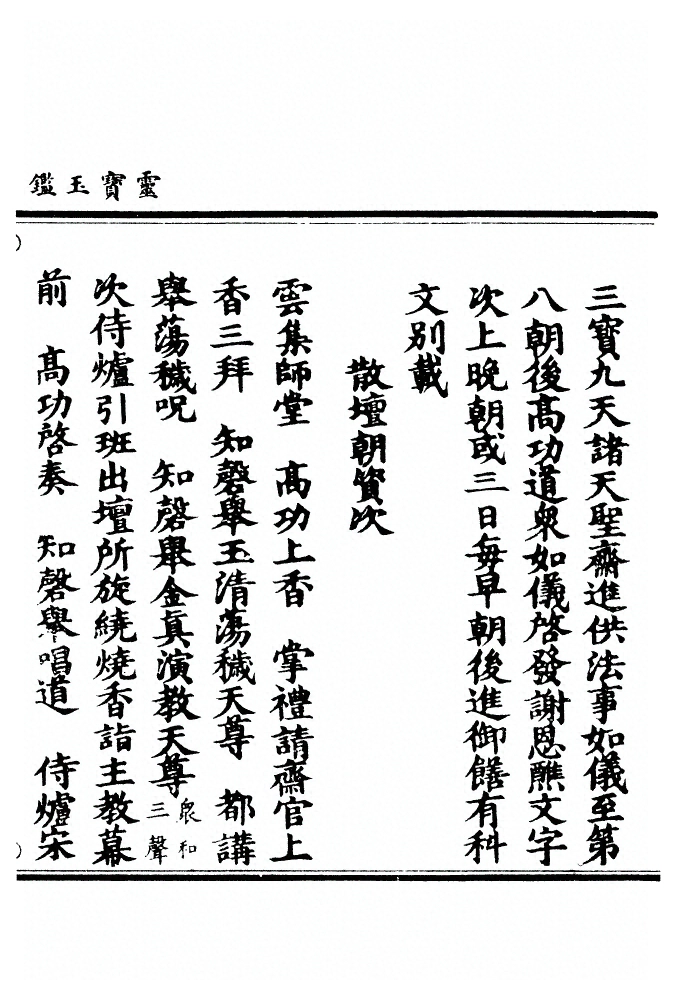 靈寶玉鑑
三寶九天諸天聖齋進供法事如儀至第
八朝後高功道衆如儀啓發謝恩醮文字
次上晚朝或三日每早朝後進御饍有科
文別載
散壇朝資次
雲集師堂　高功上香　掌禮請齋官上
香三拜　知磬舉玉清蕩穢天尊　都講
舉蕩穢呪　知磬舉金真演教天尊衆和三聲
次侍爐引班出壇所旋繞燒香詣主教幕
前　高功啓奏　知磬舉唱道　侍爐宋